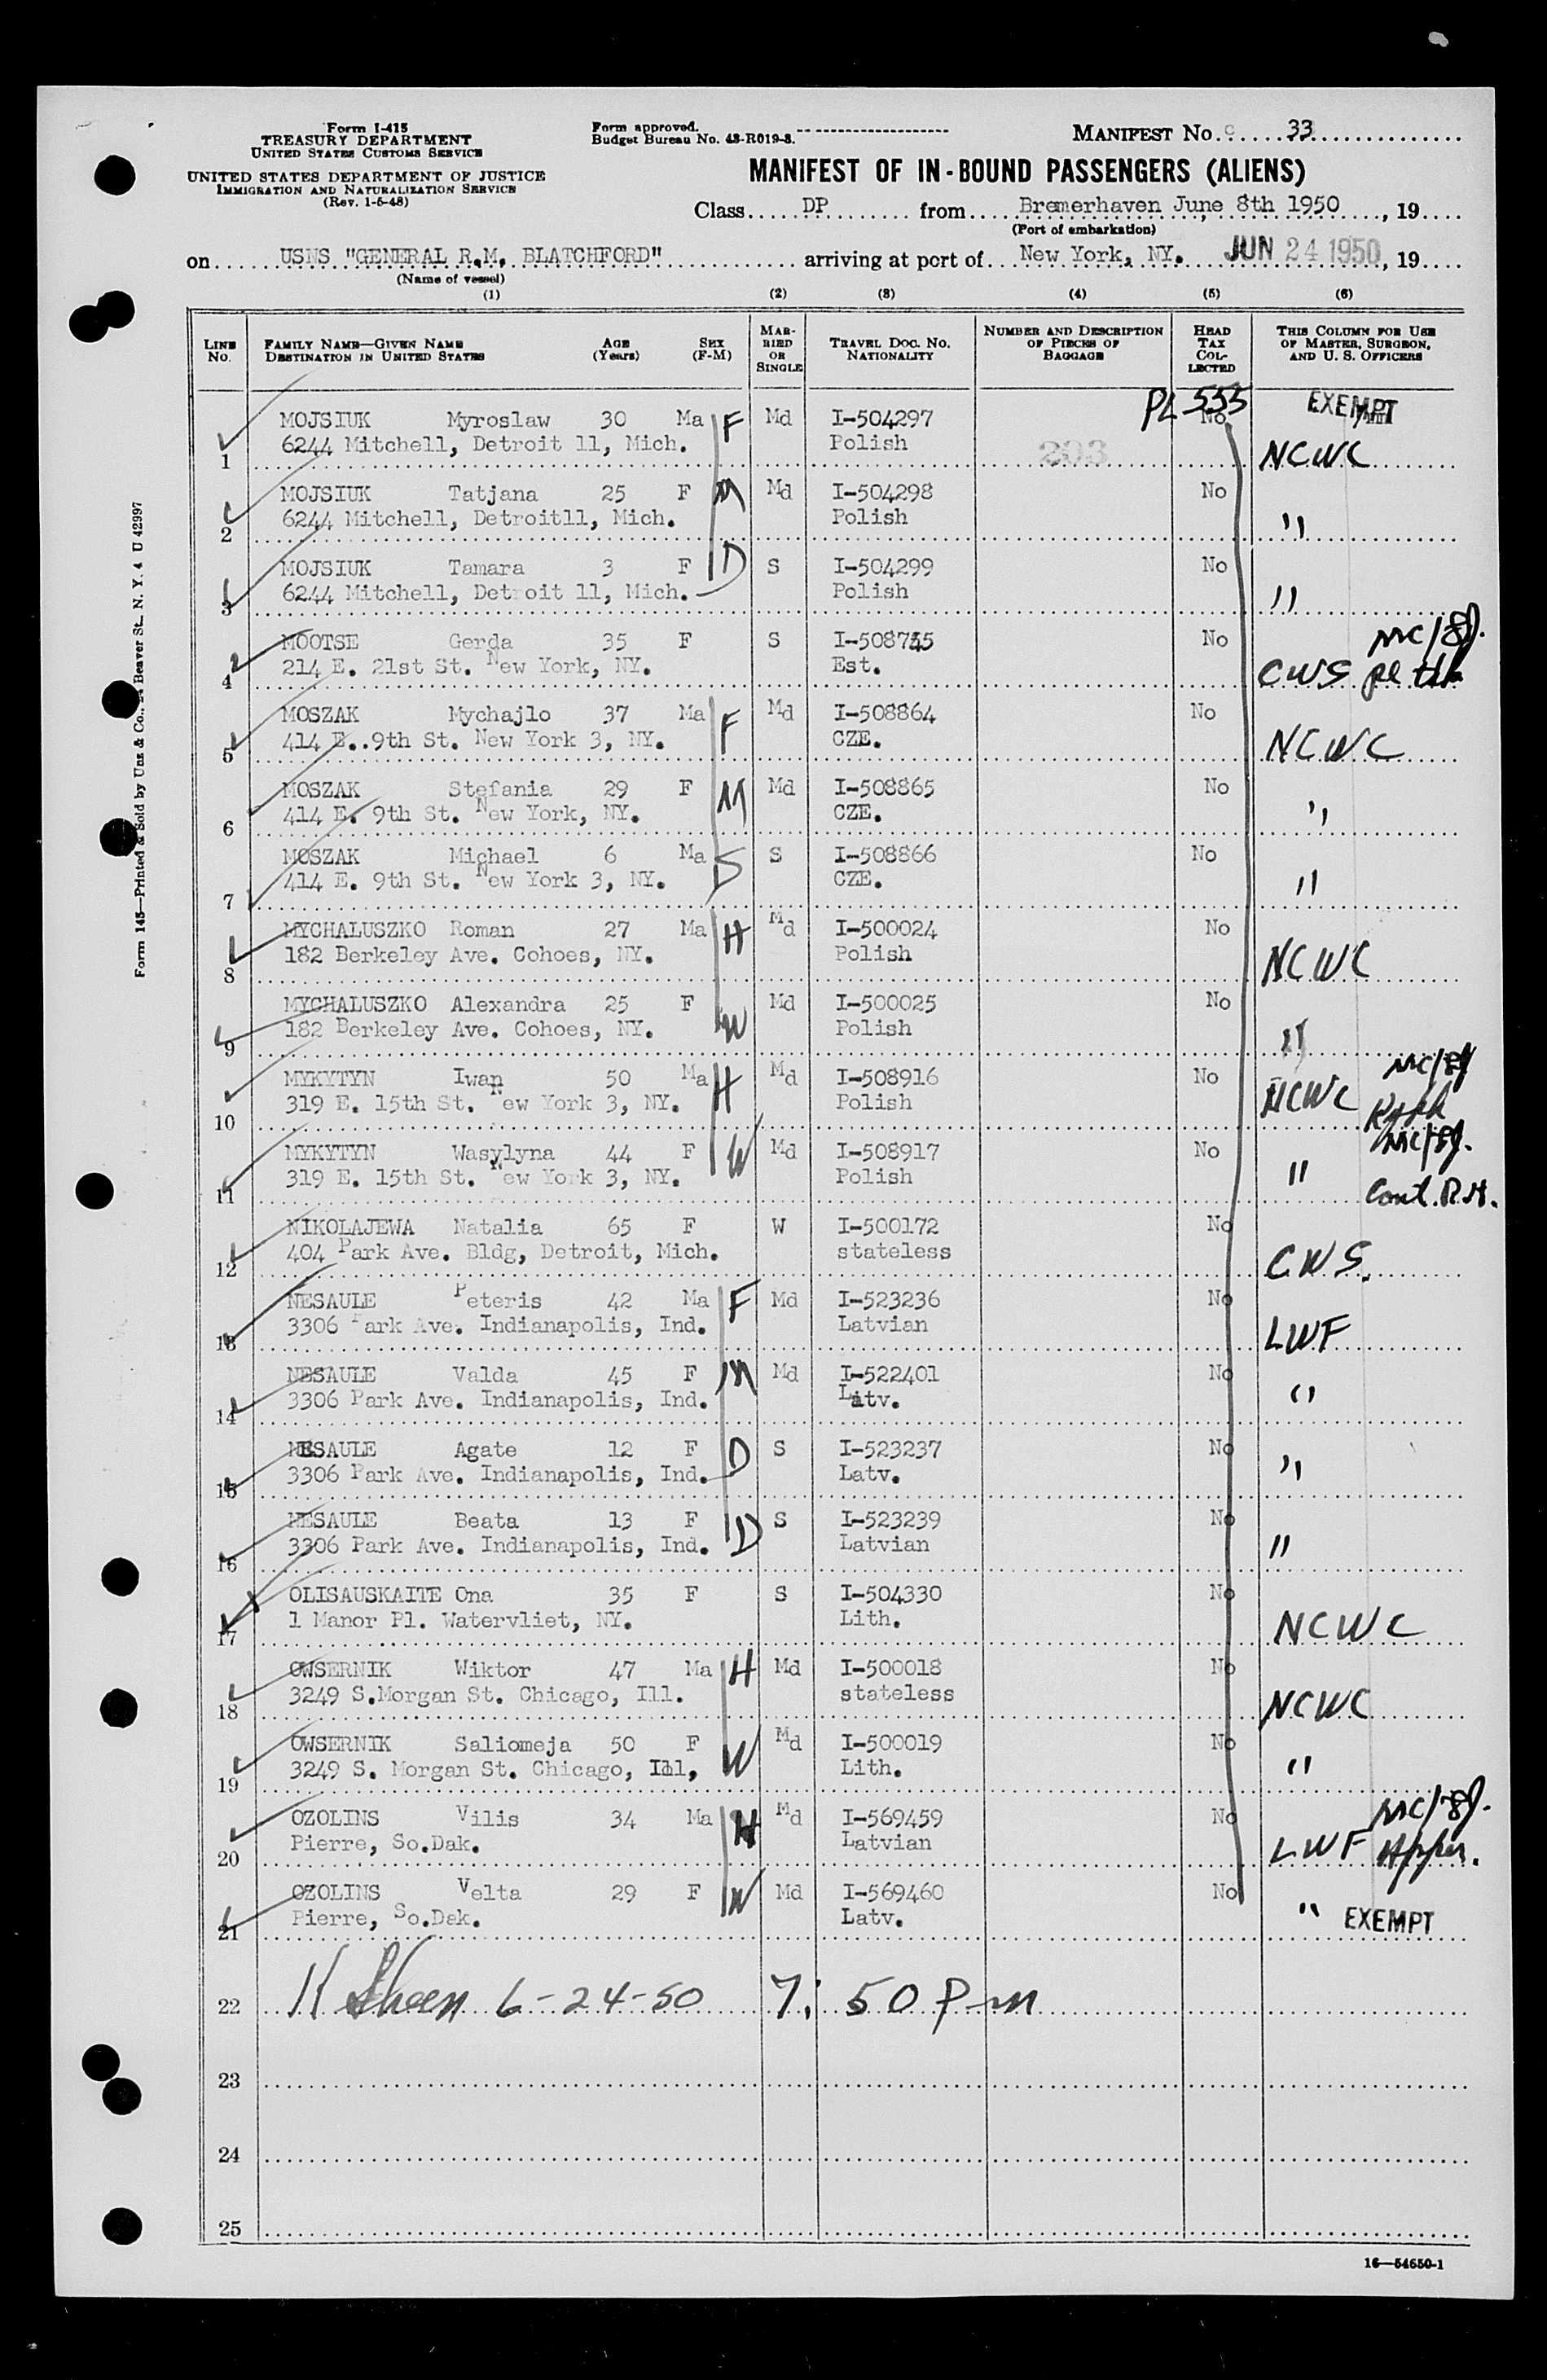 Form I-415
TREASURY DEPARTMENT
UNITED STATES CUSTOMS SERVICE
UNITED STATES DEPARTMENT OF JUSTICE
IMMIGRATION AND NATURALIZATION SERVICE
(Rev. 1-5-48)
Form approved.
Budget Bureau No. 43-R019-3.
MANIFEST No. 33
MANIFEST OF IN-BOUND PASSENGERS (ALIENS)
Class DP from Bremerhaven June 8th 1950, 19
(Port of embarkation)
on USNS "GENERAL R.M. BLATCHFORD" arriving at port of New York, NY. JUN 24 1950, 19
(Name of vessel)
(1) (2) (3) (4) (5) (6)
LINE No. FAMILY NAME—GIVEN NAME DESTINATION IN UNITED STATES AGE (Years) SEX (F-M) MARRIED OR SINGLE TRAVEL DOC. No. NATIONALITY NUMBER AND DESCRIPTION OF PIECES OF BAGGAGE HEAD TAX COLLECTED THIS COLUMN FOR USE OF MASTER, SURGEON, AND U. S. OFFICERS
PL 555 EXEMPT
MOJSIUK Myroslaw 30 Ma F Md I-504297 No
1 6244 Mitchell, Detroit 11, Mich. Polish 203 NCWC
MOJSIUK Tatjana 25 F M Md I-504298 No
2 6244 Mitchell, Detroit11, Mich. Polish "
MOJSIUK Tamara 3 F D S I-504299 No
3 6244 Mitchell, Detroit 11, Mich. Polish "
MOOTSE Gerda 35 F S I-508735 No
4 214 E. 21st St. New York, NY. Est. CWS
MOSZAK Mychajlo 37 Ma F Md I-508864 No
5 414 E..9th St. New York 3, NY. CZE. NCWC
MOSZAK Stefania 29 F M Md I-508865 No
6 414 E. 9th St. New York, NY. CZE. "
MOSZAK Michael 6 Ma S S I-508866 No
7 414 E. 9th St. New York 3, NY. CZE. "
MYCHALUSZKO Roman 27 Ma H Md I-500024 No
8 182 Berkeley Ave. Cohoes, NY. Polish NCWC
MYCHALUSZKO Alexandra 25 F W Md I-500025 No
9 182 Berkeley Ave. Cohoes, NY. Polish "
MYKYTYN Iwan 50 Ma H Md I-508916 No
10 319 E. 15th St. New York 3, NY. Polish NCWC
MYKYTYN Wasylyna 44 F W Md I-508917 No
11 319 E. 15th St. New York 3, NY. Polish " Cont. R.H.
NIKOLAJEWA Natalia 65 F W I-500172 No
12 404 Park Ave. Bldg, Detroit, Mich. stateless CWS.
NESAULE Peteris 42 Ma F Md I-523236 No
13 3306 Park Ave. Indianapolis, Ind. Latvian LWF
NESAULE Valda 45 F M Md I-522401 No
14 3306 Park Ave. Indianapolis, Ind. Latv. "
NESAULE Agate 12 F D S I-523237 No
15 3306 Park Ave. Indianapolis, Ind. Latv. "
NESAULE Beata 13 F D S I-523239 No
16 3306 Park Ave. Indianapolis, Ind. Latvian "
OLISAUSKAITE Ona 35 F S I-504330 No
17 1 Manor Pl. Watervliet, NY. Lith. NCWC
OWSERNIK Wiktor 47 Ma H Md I-500018 No
18 3249 S.Morgan St. Chicago, Ill. stateless NCWC
OWSERNIK Saliomeja 50 F W Md I-500019 No
19 3249 S. Morgan St. Chicago, Ill, Lith. "
OZOLINS Vilis 34 Ma H Md I-569459 No
20 Pierre, So.Dak. Latvian LWF
OZOLINS Velta 29 F W Md I-569460 No
21 Pierre, So.Dak. Latv. " EXEMPT
22 6-24-50 7:50 Pm
23
24
25
16—54650-1
Form 145—Printed & Sold by Unz & Co., Beaver St., N. Y. 4 U 42997